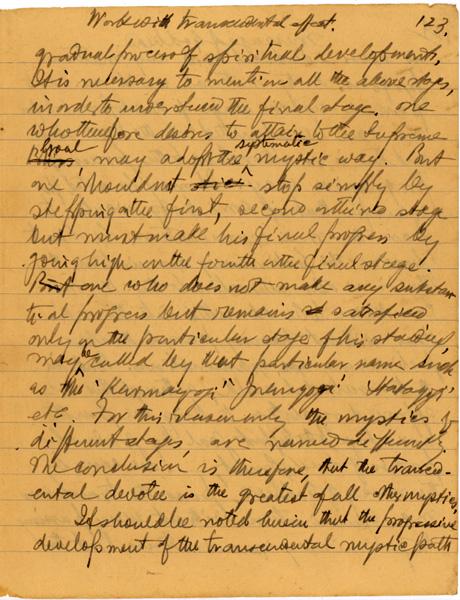 Work with transcendental effect. 123,
gradual process of spiritual development,
It is necessary to mention all the above steps,
in order to understand the final stage. one
who therefore desires to attain to the Supreme
goal, may adopt the systematic mystic way. But
one shouldnot stop simply by
stepping the first, second or third stage
but must make his final progress by
going high on the fourth or the final stage.
But one who does not make any substan
tial progress but remains satisfied
only on the particular stage of his standing
may be called by that particular name such
as the 'Karmayogi' Jnanyogi' Hatayogi'
etc. For this reason only the mystics of
different steps are named differently.
The conclusion is therefore, that the transcend-
ental devotee is the greatest of all other mystics,
It should be noted herein that the progressive
development of the transcendental mystic path